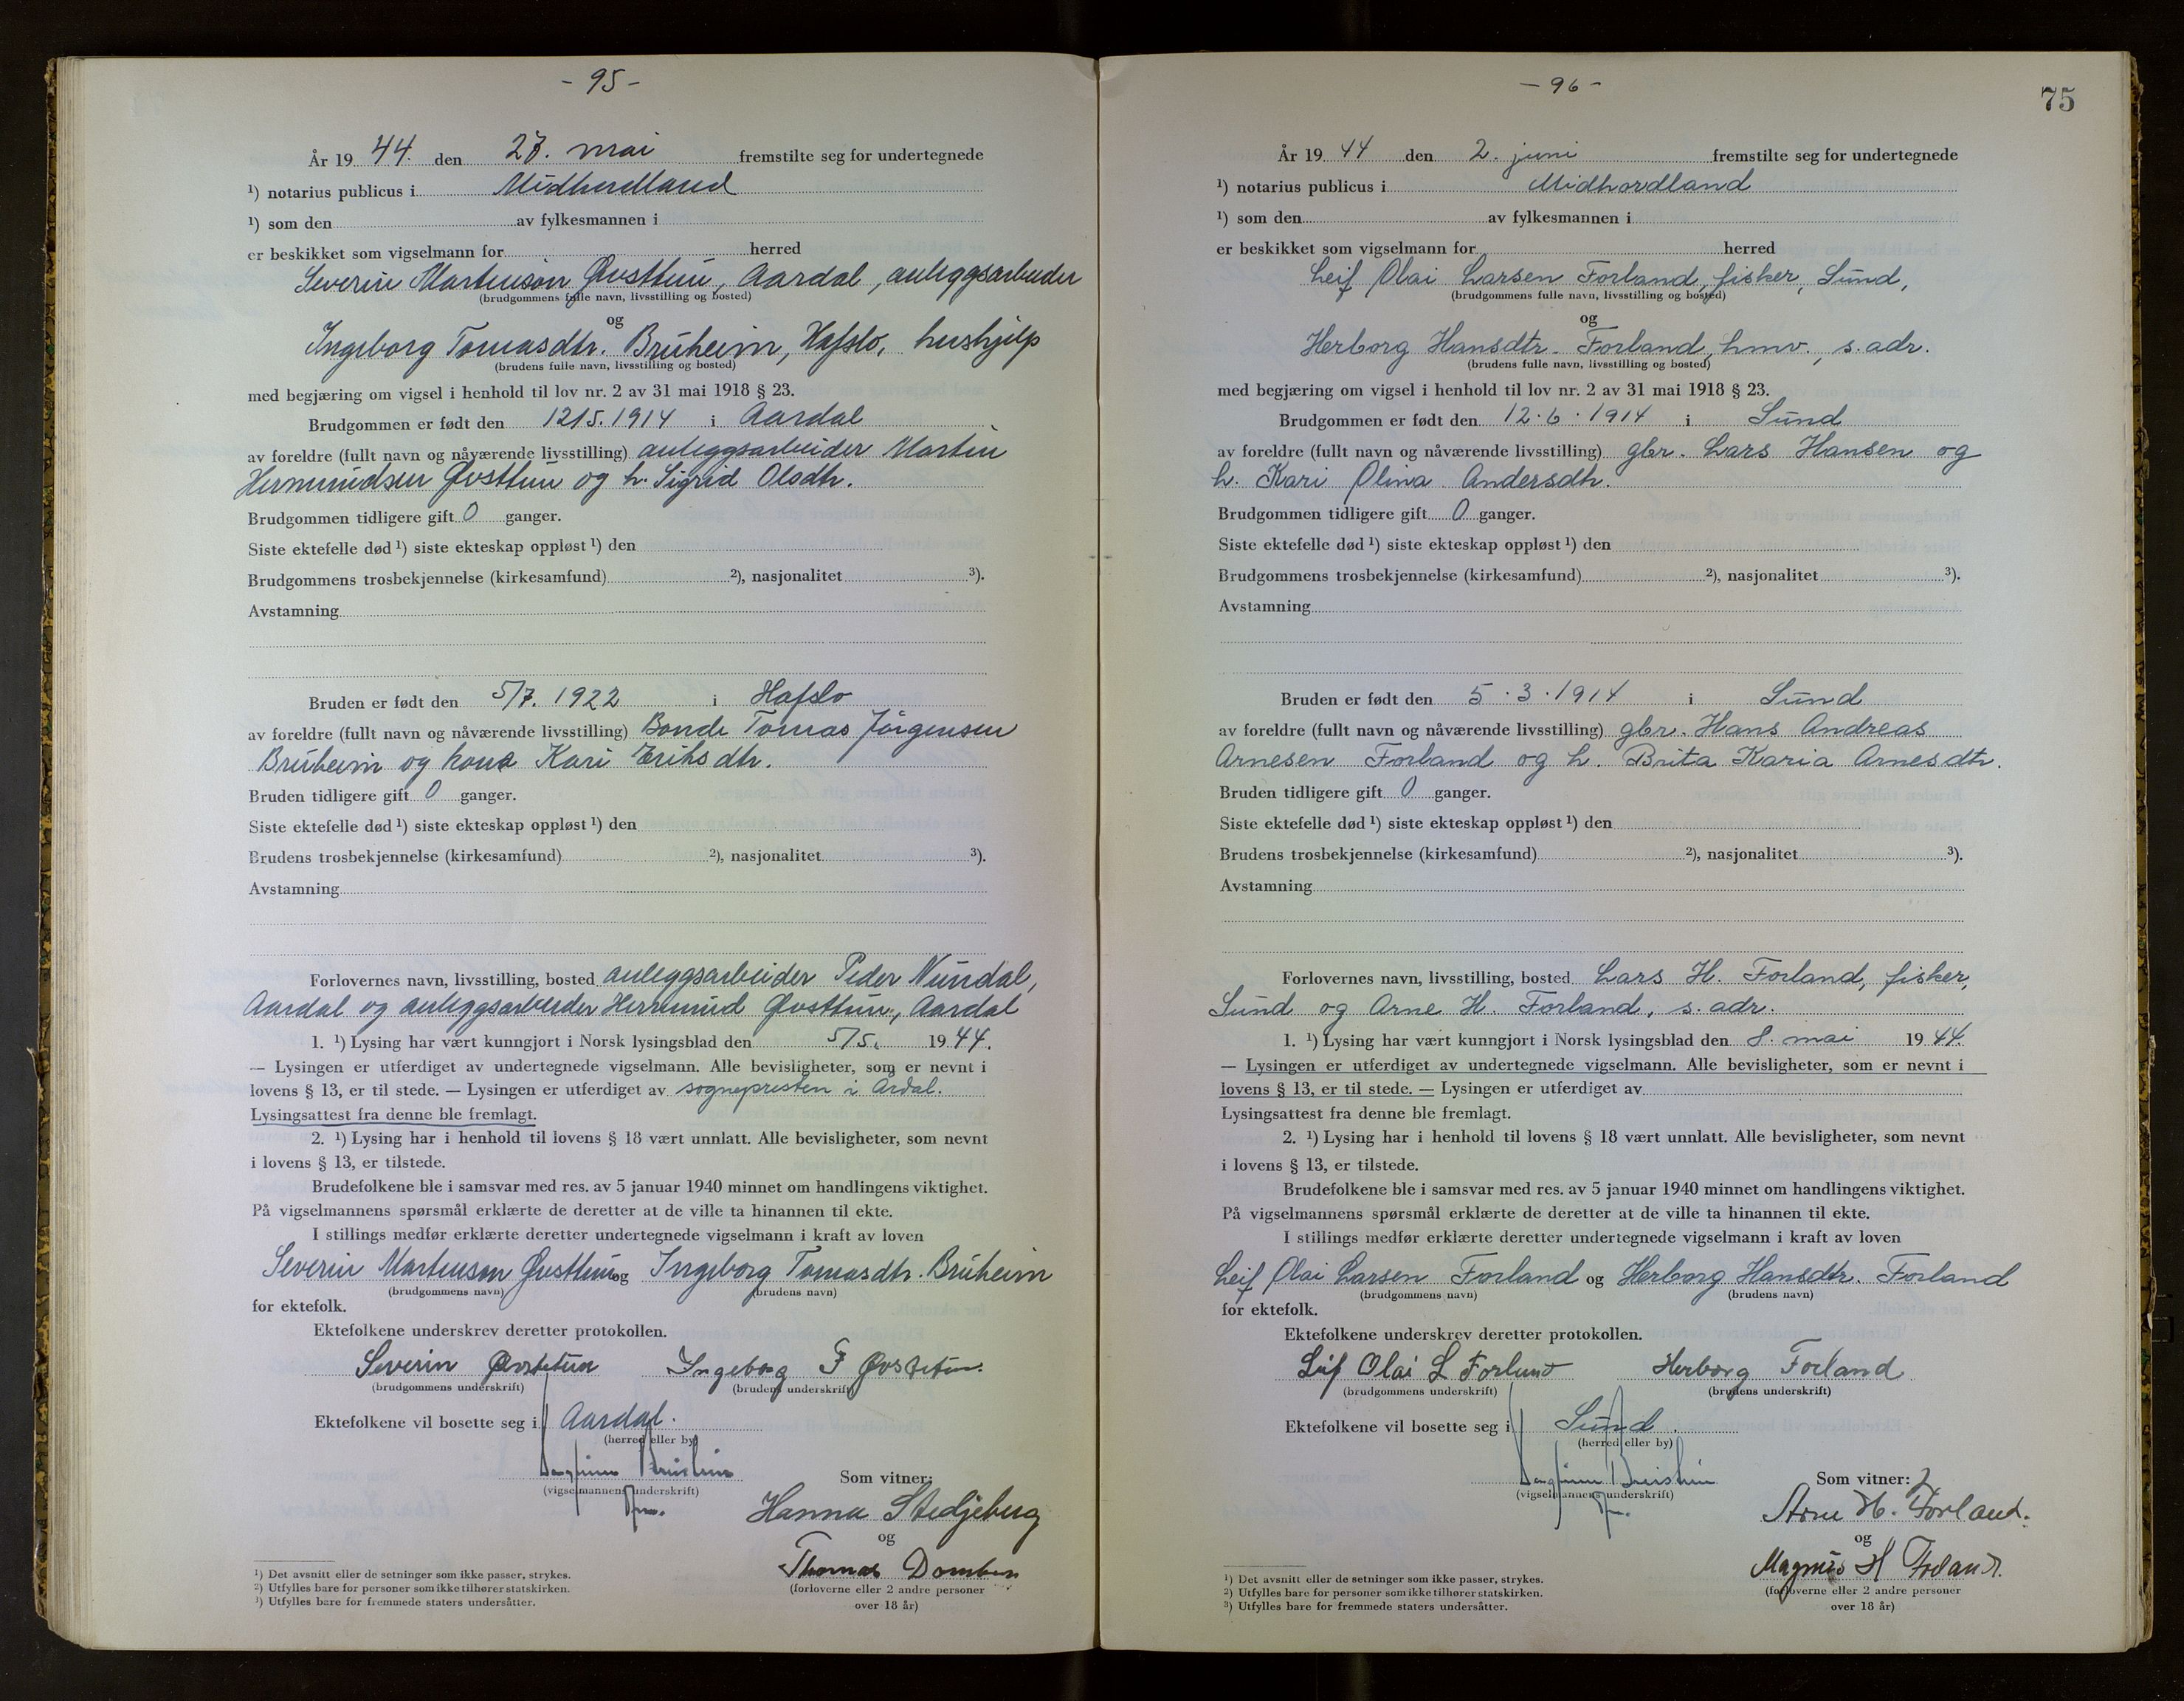 - 95 -
År 19 44. den 27. mai fremstilte seg for undertegnede
¹) notarius publicus i Midhordland
¹) som den av fylkesmannen i
er beskikket som vigselmann for herred
Severin Martinson Øvsttun, Aardal, anleggsarbeider
(brudgommens fulle navn, livsstilling og bosted)
og
Ingeborg Tomasdtr. Bruheim, Hafslo, hushjelp
(brudens fulle navn, livsstilling og bosted)
med begjæring om vigsel i henhold til lov nr. 2 av 31 mai 1918 § 23.
Brudgommen er født den 12/5. 1914 i Aardal
av foreldre (fullt navn og nåværende livsstilling) anleggsarbeider Martin
Hermundsen Øvsttun og h. Sigrid Olsdtr.
Brudgommen tidligere gift 0 ganger.
Siste ektefelle død ¹) siste ekteskap oppløst ¹) den
Brudgommens trosbekjennelse (kirkesamfund) ²), nasjonalitet ³).
Avstamning
Bruden er født den 5/7. 1922 i Hafslo
av foreldre (fullt navn og nåværende livsstilling) Bonde Tomas Jørgensen
Bruheim og kona Kari Eriksdtr.
Bruden tidligere gift 0 ganger.
Siste ektefelle død ¹) siste ekteskap oppløst ¹) den
Brudens trosbekjennelse (kirkesamfund) ²), nasjonalitet ³).
Avstamning
Forlovernes navn, livsstilling, bosted anleggsarbeider Peder Nundal,
Aardal og anleggsarbeider Hermund Øvsttun, Aardal
1. ¹) Lysing har vært kunngjort i Norsk lysingsblad den 5/5. 19 44.
— Lysingen er utferdiget av undertegnede vigselmann. Alle bevisligheter, som er nevnt i
lovens § 13, er til stede. — Lysingen er utferdiget av sognepresten i Årdal.
Lysingsattest fra denne ble fremlagt.
2. ¹) Lysing har i henhold til lovens § 18 vært unnlatt. Alle bevisligheter, som nevnt
i lovens § 13, er tilstede.
Brudefolkene ble i samsvar med res. av 5 januar 1940 minnet om handlingens viktighet.
På vigselmannens spørsmål erklærte de deretter at de ville ta hinannen til ekte.
I stillings medfør erklærte deretter undertegnede vigselmann i kraft av loven
Severin Martinson Øvsttun og Ingeborg Tomasdtr. Bruheim
(brudgommens navn) (brudens navn)
for ektefolk.
Ektefolkene underskrev deretter protokollen.
Severin Øvstetun Ingeborg T Øvstetun.
(brudgommens underskrift) (brudens underskrift)
Ektefolkene vil bosette seg i Aardal.
(herred eller by)
Som vitner:
(vigselmannens underskrift)
Hanna Stedjeberg
og
Thomas
(forloverne eller 2 andre personer
over 18 år)
¹) Det avsnitt eller de setninger som ikke passer, strykes.
²) Utfylles bare for personer som ikke tilhører statskirken.
³) Utfylles bare for fremmede staters undersåtter.
- 96 -
75
År 19 44 den 2. juni fremstilte seg for undertegnede
¹) notarius publicus i Midhordland
¹) som den av fylkesmannen i
er beskikket som vigselmann for herred
Leif Olai Larsen Forland, fisker, Sund,
(brudgommens fulle navn, livsstilling og bosted)
og
Herborg Hansdtr. Forland, hmv., s. adr.
(brudens fulle navn, livsstilling og bosted)
med begjæring om vigsel i henhold til lov nr. 2 av 31 mai 1918 § 23.
Brudgommen er født den 12.6.1914 i Sund
av foreldre (fullt navn og nåværende livsstilling) gbr. Lars Hansen og
h. Kari Olina Andersdtr.
Brudgommen tidligere gift 0 ganger.
Siste ektefelle død ¹) siste ekteskap oppløst ¹) den
Brudgommens trosbekjennelse (kirkesamfund) ²), nasjonalitet ³).
Avstamning
Bruden er født den 5.3.1914 i Sund
av foreldre (fullt navn og nåværende livsstilling) gbr. Hans Andreas
Arnesen Forland og h. Brita Karia Arnesdtr.
Bruden tidligere gift 0 ganger.
Siste ektefelle død ¹) siste ekteskap oppløst ¹) den
Brudens trosbekjennelse (kirkesamfund) ²), nasjonalitet ³).
Avstamning
Forlovernes navn, livsstilling, bosted Lars H. Forland, fisker,
Sund og Arne H. Forland, s. adr.
1. ¹) Lysing har vært kunngjort i Norsk lysingsblad den 8. mai 19 44.
— Lysingen er utferdiget av undertegnede vigselmann. Alle bevisligheter, som er nevnt i
lovens § 13, er til stede. — Lysingen er utferdiget av
Lysingsattest fra denne ble fremlagt.
2. ¹) Lysing har i henhold til lovens § 18 vært unnlatt. Alle bevisligheter, som nevnt
i lovens § 13, er tilstede.
Brudefolkene ble i samsvar med res. av 5 januar 1940 minnet om handlingens viktighet.
På vigselmannens spørsmål erklærte de deretter at de ville ta hinannen til ekte.
I stillings medfør erklærte deretter undertegnede vigselmann i kraft av loven
Leif Olai Larsen Forland og Herborg Hansdtr. Forland
(brudgommens navn) (brudens navn)
for ektefolk.
Ektefolkene underskrev deretter protokollen.
Leif Olai L Forland Herborg Forland
(brudgommens underskrift) (brudens underskrift)
Ektefolkene vil bosette seg i Sund.
(herred eller by)
Som vitner:
(vigselmannens underskrift)
Arne H. Forland.
og
Magnus H Forland.
(forloverne eller 2 andre personer
over 18 år)
¹) Det avsnitt eller de setninger som ikke passer, strykes.
²) Utfylles bare for personer som ikke tilhører statskirken.
³) Utfylles bare for fremmede staters undersåtter.